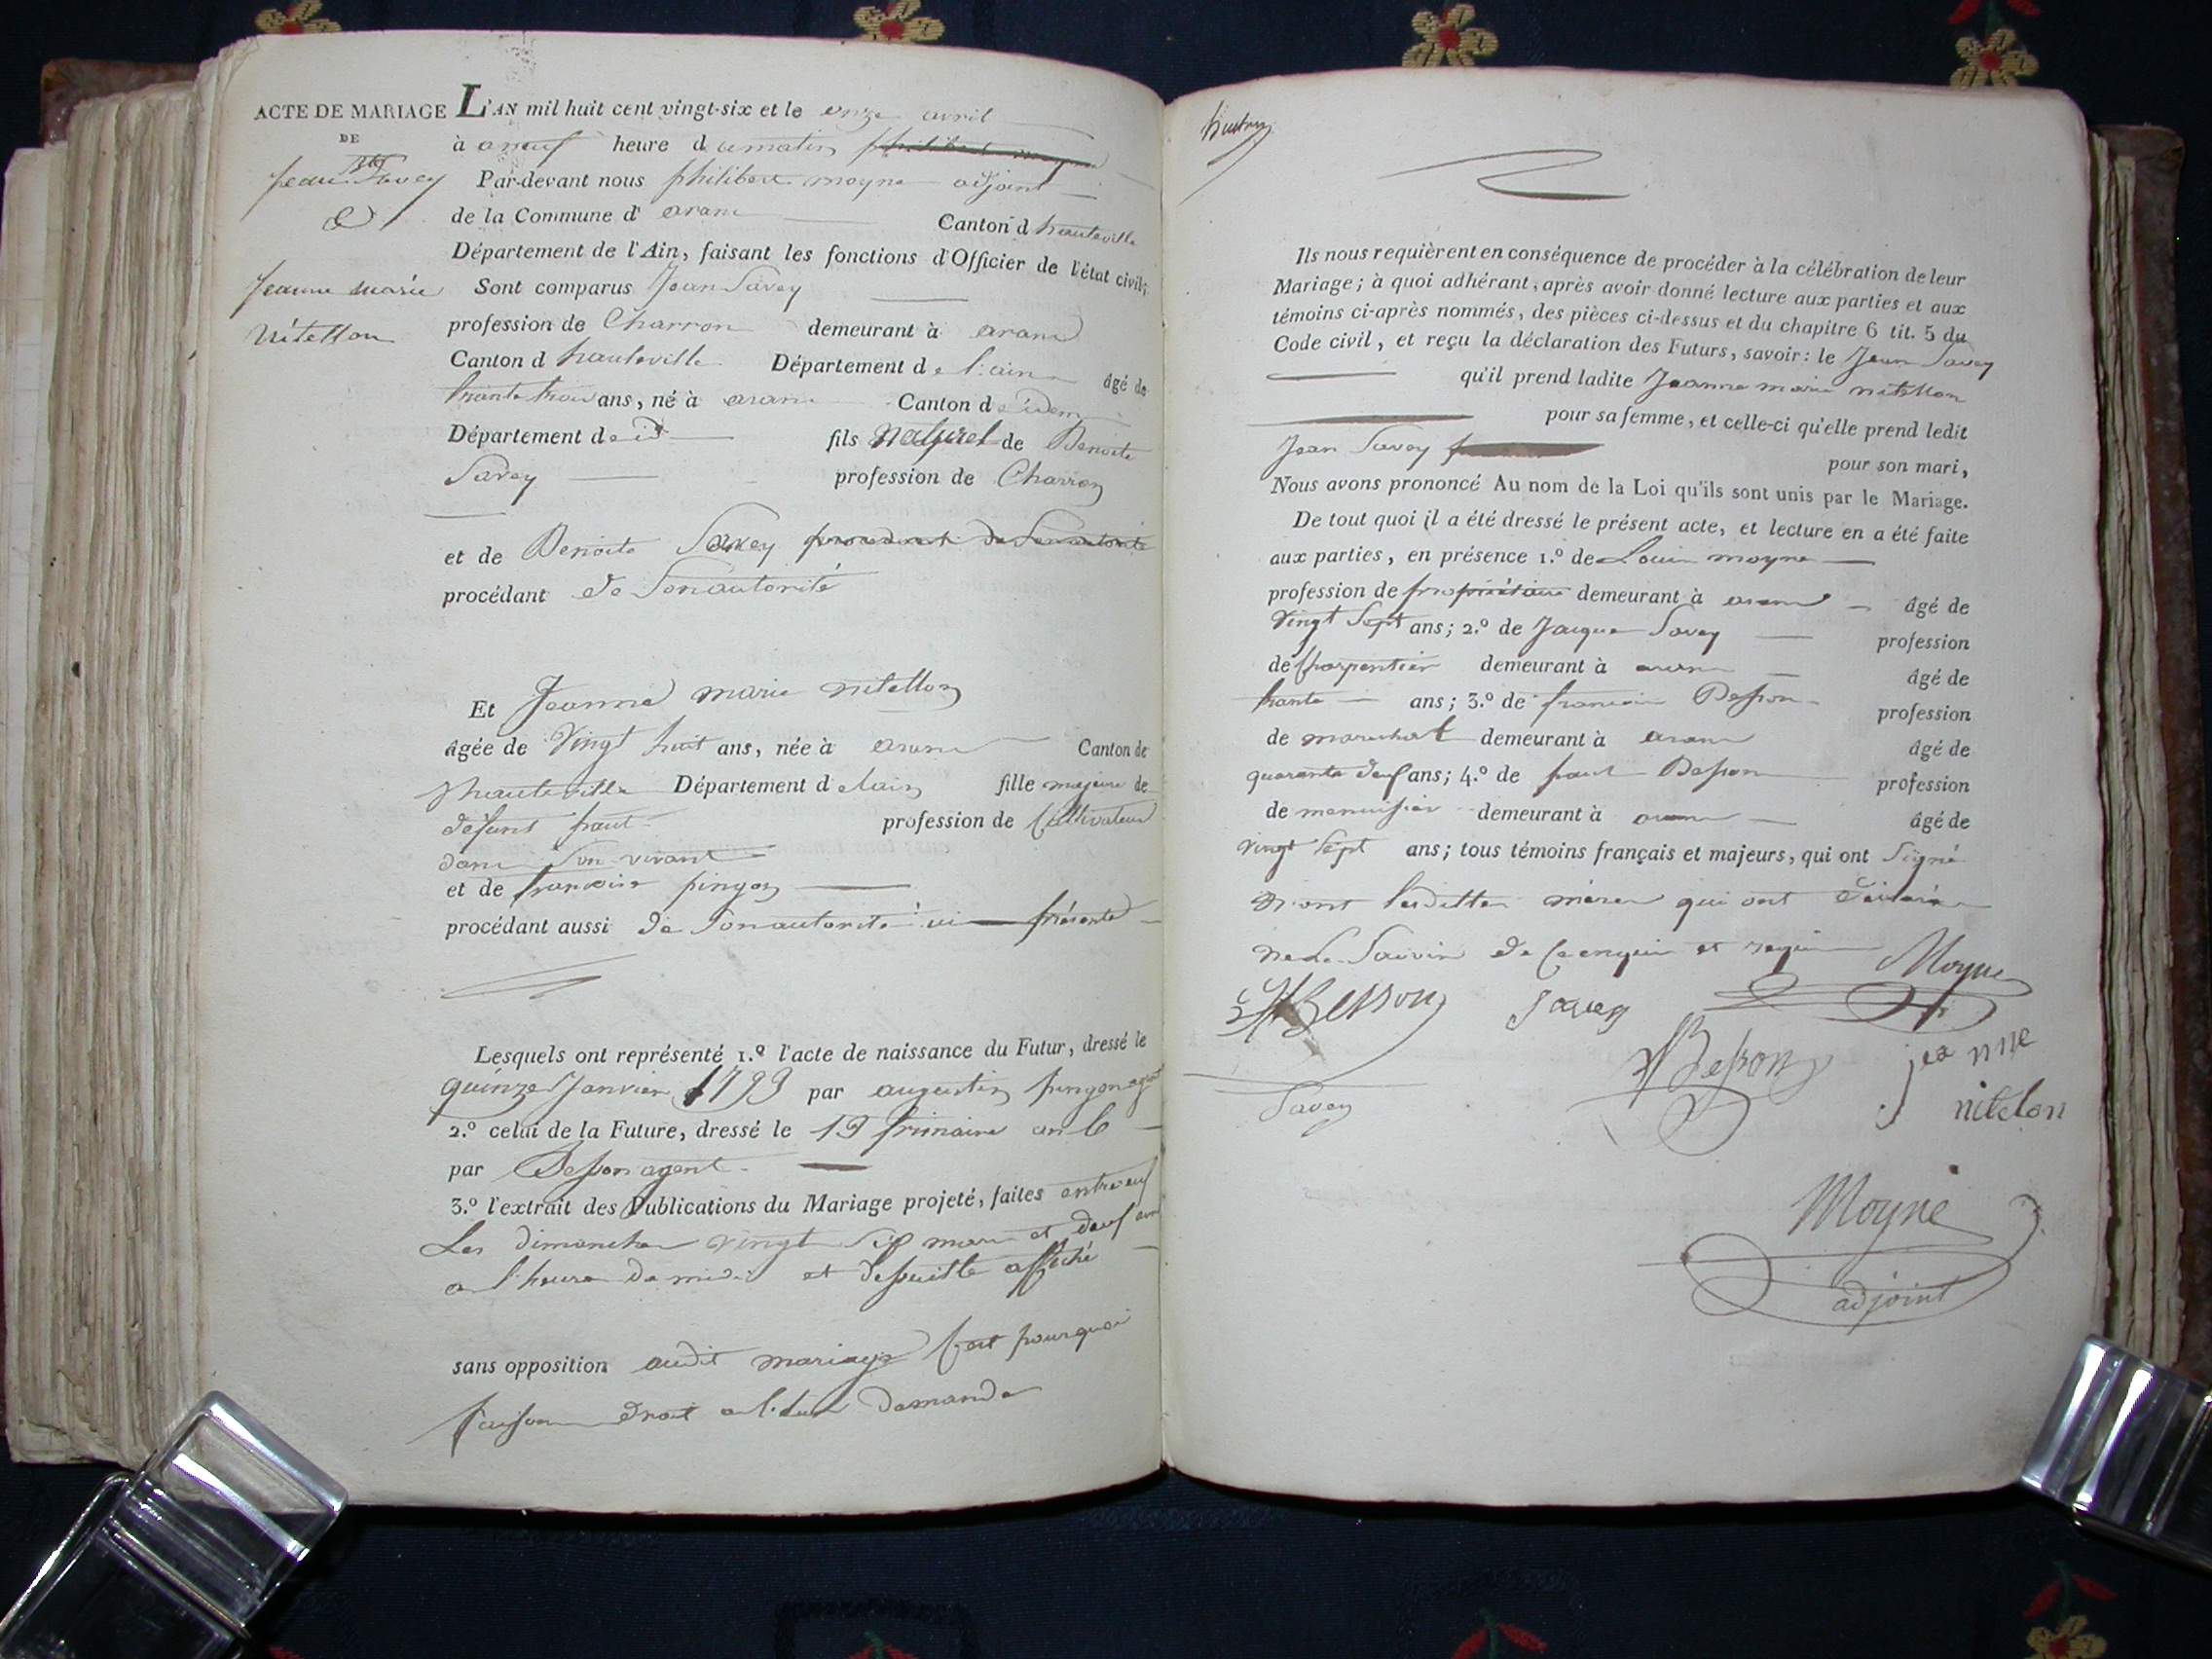 ACTE DE MARIAGE
DE
Jean Bte Savey
&
Jeanne marie
nitellon
L'AN mil huit cent vingt-six et le onze avril
à a neuf heure du matin philibert moyne
Par-devant nous philibert moyne adjoint
de la Commune d' aranc Canton d hauteville
Département de l'Ain, faisant les fonctions d'Officier de l'état civil;
Sont comparus Jean Savey
profession de Charron demeurant à aranc
Canton d hauteville Département de l'ain âgé de
trante trois ans, né à aranc Canton d idem
Département de id fils naturel de Benoite
Savey profession de Charron
et de Benoite Savey procedant de Son autorité
procédant de Son autorité
Et Jeanne marie nitellon
âgée de vingt huit ans, née à aranc Canton de
hauteville Département d elain fille majeure de
defunt paul profession de Cultivateur
dans Son vivant
et de francoise pingon
procédant aussi de Son autorité ici présente
Lesquels ont représenté 1.º l'acte de naissance du Futur, dressé le
quinze Janvier 1793 par augustin pingon agent
2.º celui de la Future, dressé le 19 frimaire an 6
par Besson agent
3.º l'extrait des Publications du Mariage projeté, faites entre eux
Les dimanche vingt Six mars et deux avril
a l'heure de midi et desuitte affiché
sans opposition audit mariage C'est pourquoi
faisant droit a leur demande
Ils nous requièrent en conséquence de procéder à la célébration de leur
Mariage; à quoi adhérant, après avoir donné lecture aux parties et aux
témoins ci-après nommés, des pièces ci-dessus et du chapitre 6 tit. 5 du
Code civil, et reçu la déclaration des Futurs, savoir: le Jean Savey
qu'il prend ladite Jeanne marie nitellon
pour sa femme, et celle-ci qu'elle prend ledit
Jean Savey
pour son mari,
Nous avons prononcé Au nom de la Loi qu'ils sont unis par le Mariage.
De tout quoi il a été dressé le présent acte, et lecture en a été faite
aux parties, en présence 1.º de Louis moyne
profession de propriétaire demeurant à aranc âgé de
vingt Sept ans; 2.º de Jacque Savey profession
de Charpentier demeurant à aranc âgé de
trante ans; 3.º de francois Besson profession
de marechal demeurant à aranc âgé de
quarante deux ans; 4.º de paul Besson profession
de menuisier demeurant à aranc âgé de
vingt Sept ans; tous témoins français et majeurs, qui ont Signé
non lesdittes mères qui ont déclaré
ne le Savoir de Ce enquis et requis Moyne
Besson Savey
Besson jeanne
Savey nitelon
Moyne
adjoint